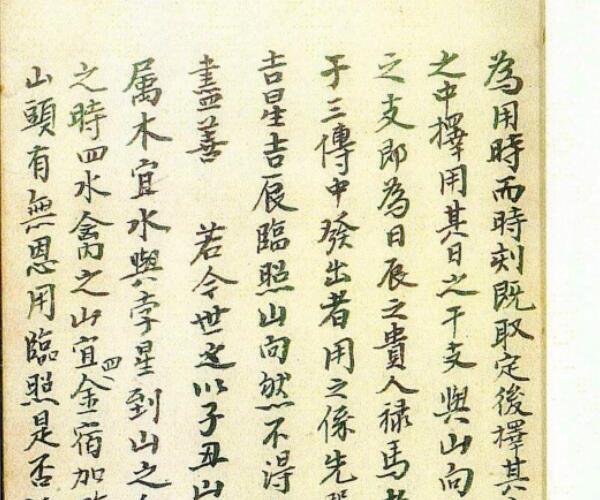 為用時而時刻既取定後擇其
之中擇用其日之干支與山向
之支即為日辰之貴人祿馬
于三傳中發出者用之係先
吉星吉辰臨照山向然不得
盡善 若今世迭以子丑山
属木宜水與孛星到山之
之時四水禽之山宜四金宿加
山頭有無恩用臨照是否